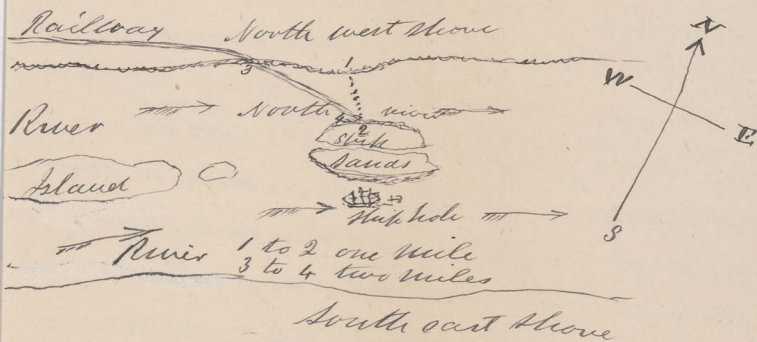 Railway North west shore
N
W
E
S
3 1
River North river
4 2
Ship
Sands
Island
Ship hole
River 1 to 2 one mile
3 to 4 two miles
South east shore